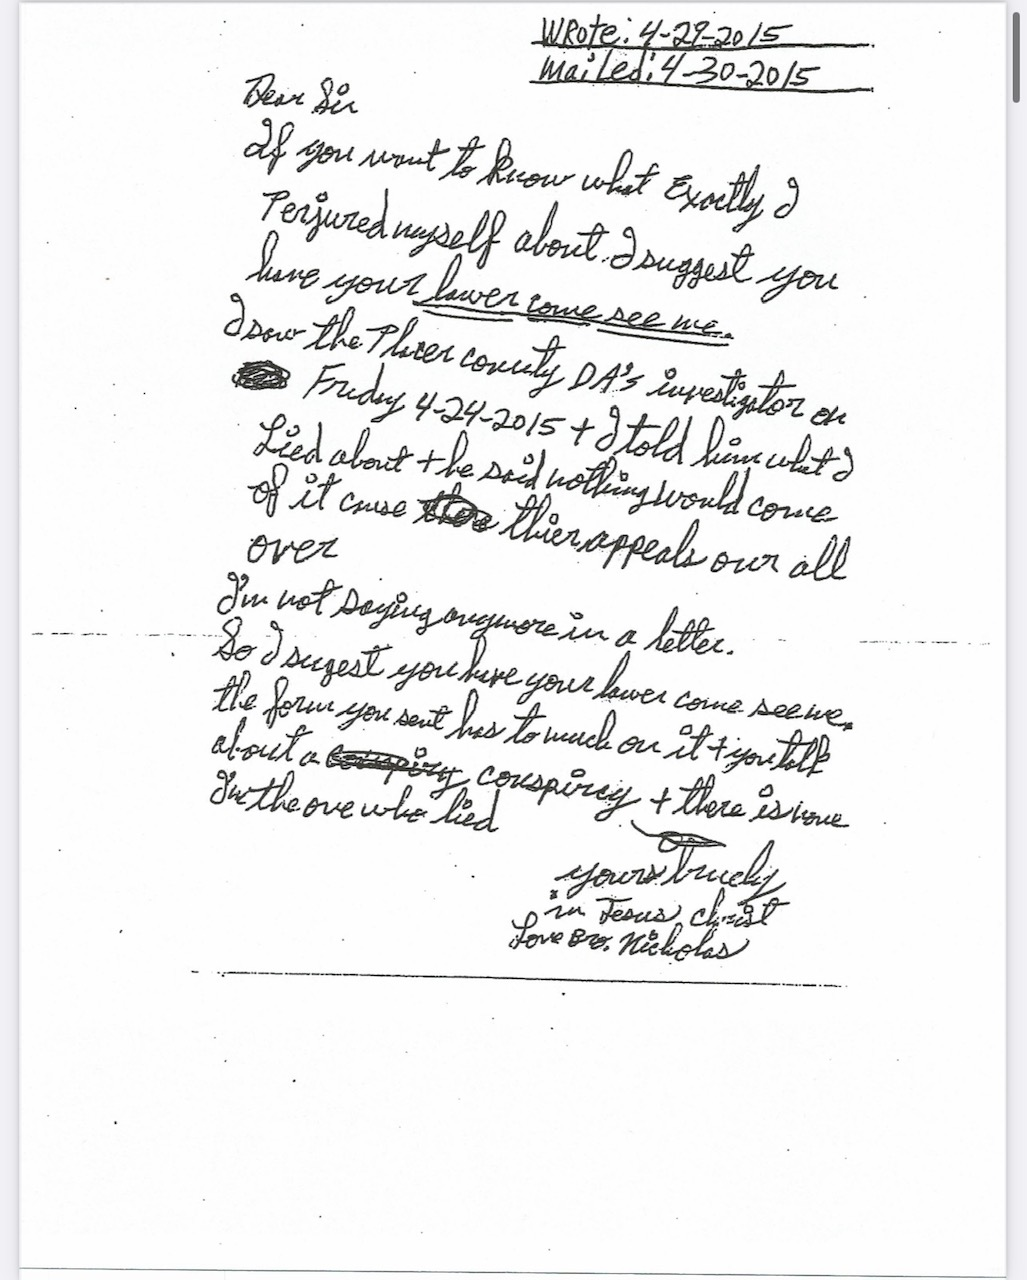 Wrote: 4-29-2015
Mailed: 4-30-2015
Dear Sir
If you want to know what Exactly I
Perjured myself about. I suggest you
have your lawer come see me.
I saw the Placer county DA's investigator on
Friday 4-24-2015 + I told him what I
Lied about + he said nothing would come
of it cause thier appeals our all
over
I'm not saying anymore in a letter.
So I sugest you have your lawer come see me.
the form you sent has to much on it + you talk
about a conspiricy + there is none
I'm the one who lied
yours truely
in Jesus christ
Love Bro. Nicholas